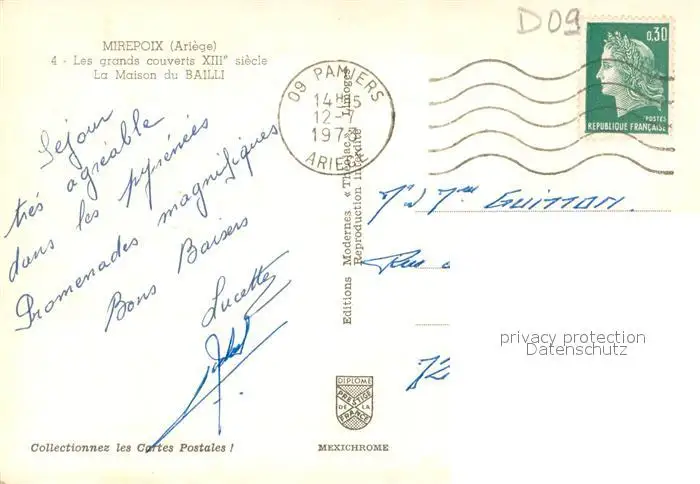 D09
MIREPOIX (Ariège)
4 - Les grands couverts XIIIe siècle
La Maison du BAILLI
09 PAMIERS
14H15
12-7
1973
ARIEGE
0,30
POSTES
REPUBLIQUE FRANÇAISE
Séjour
très agréable
dans les pyrénées
Promenades magnifiques
Bons Baisers
Lucette
Editions Modernes « Théojac » Limoges
Reproduction interdite
Mr Mme GUITTON.
Rue
privacy protection
Datenschutz
DIPLOME
PRESTIGE
DE LA
FRANCE
Collectionnez les Cartes Postales !
MEXICHROME